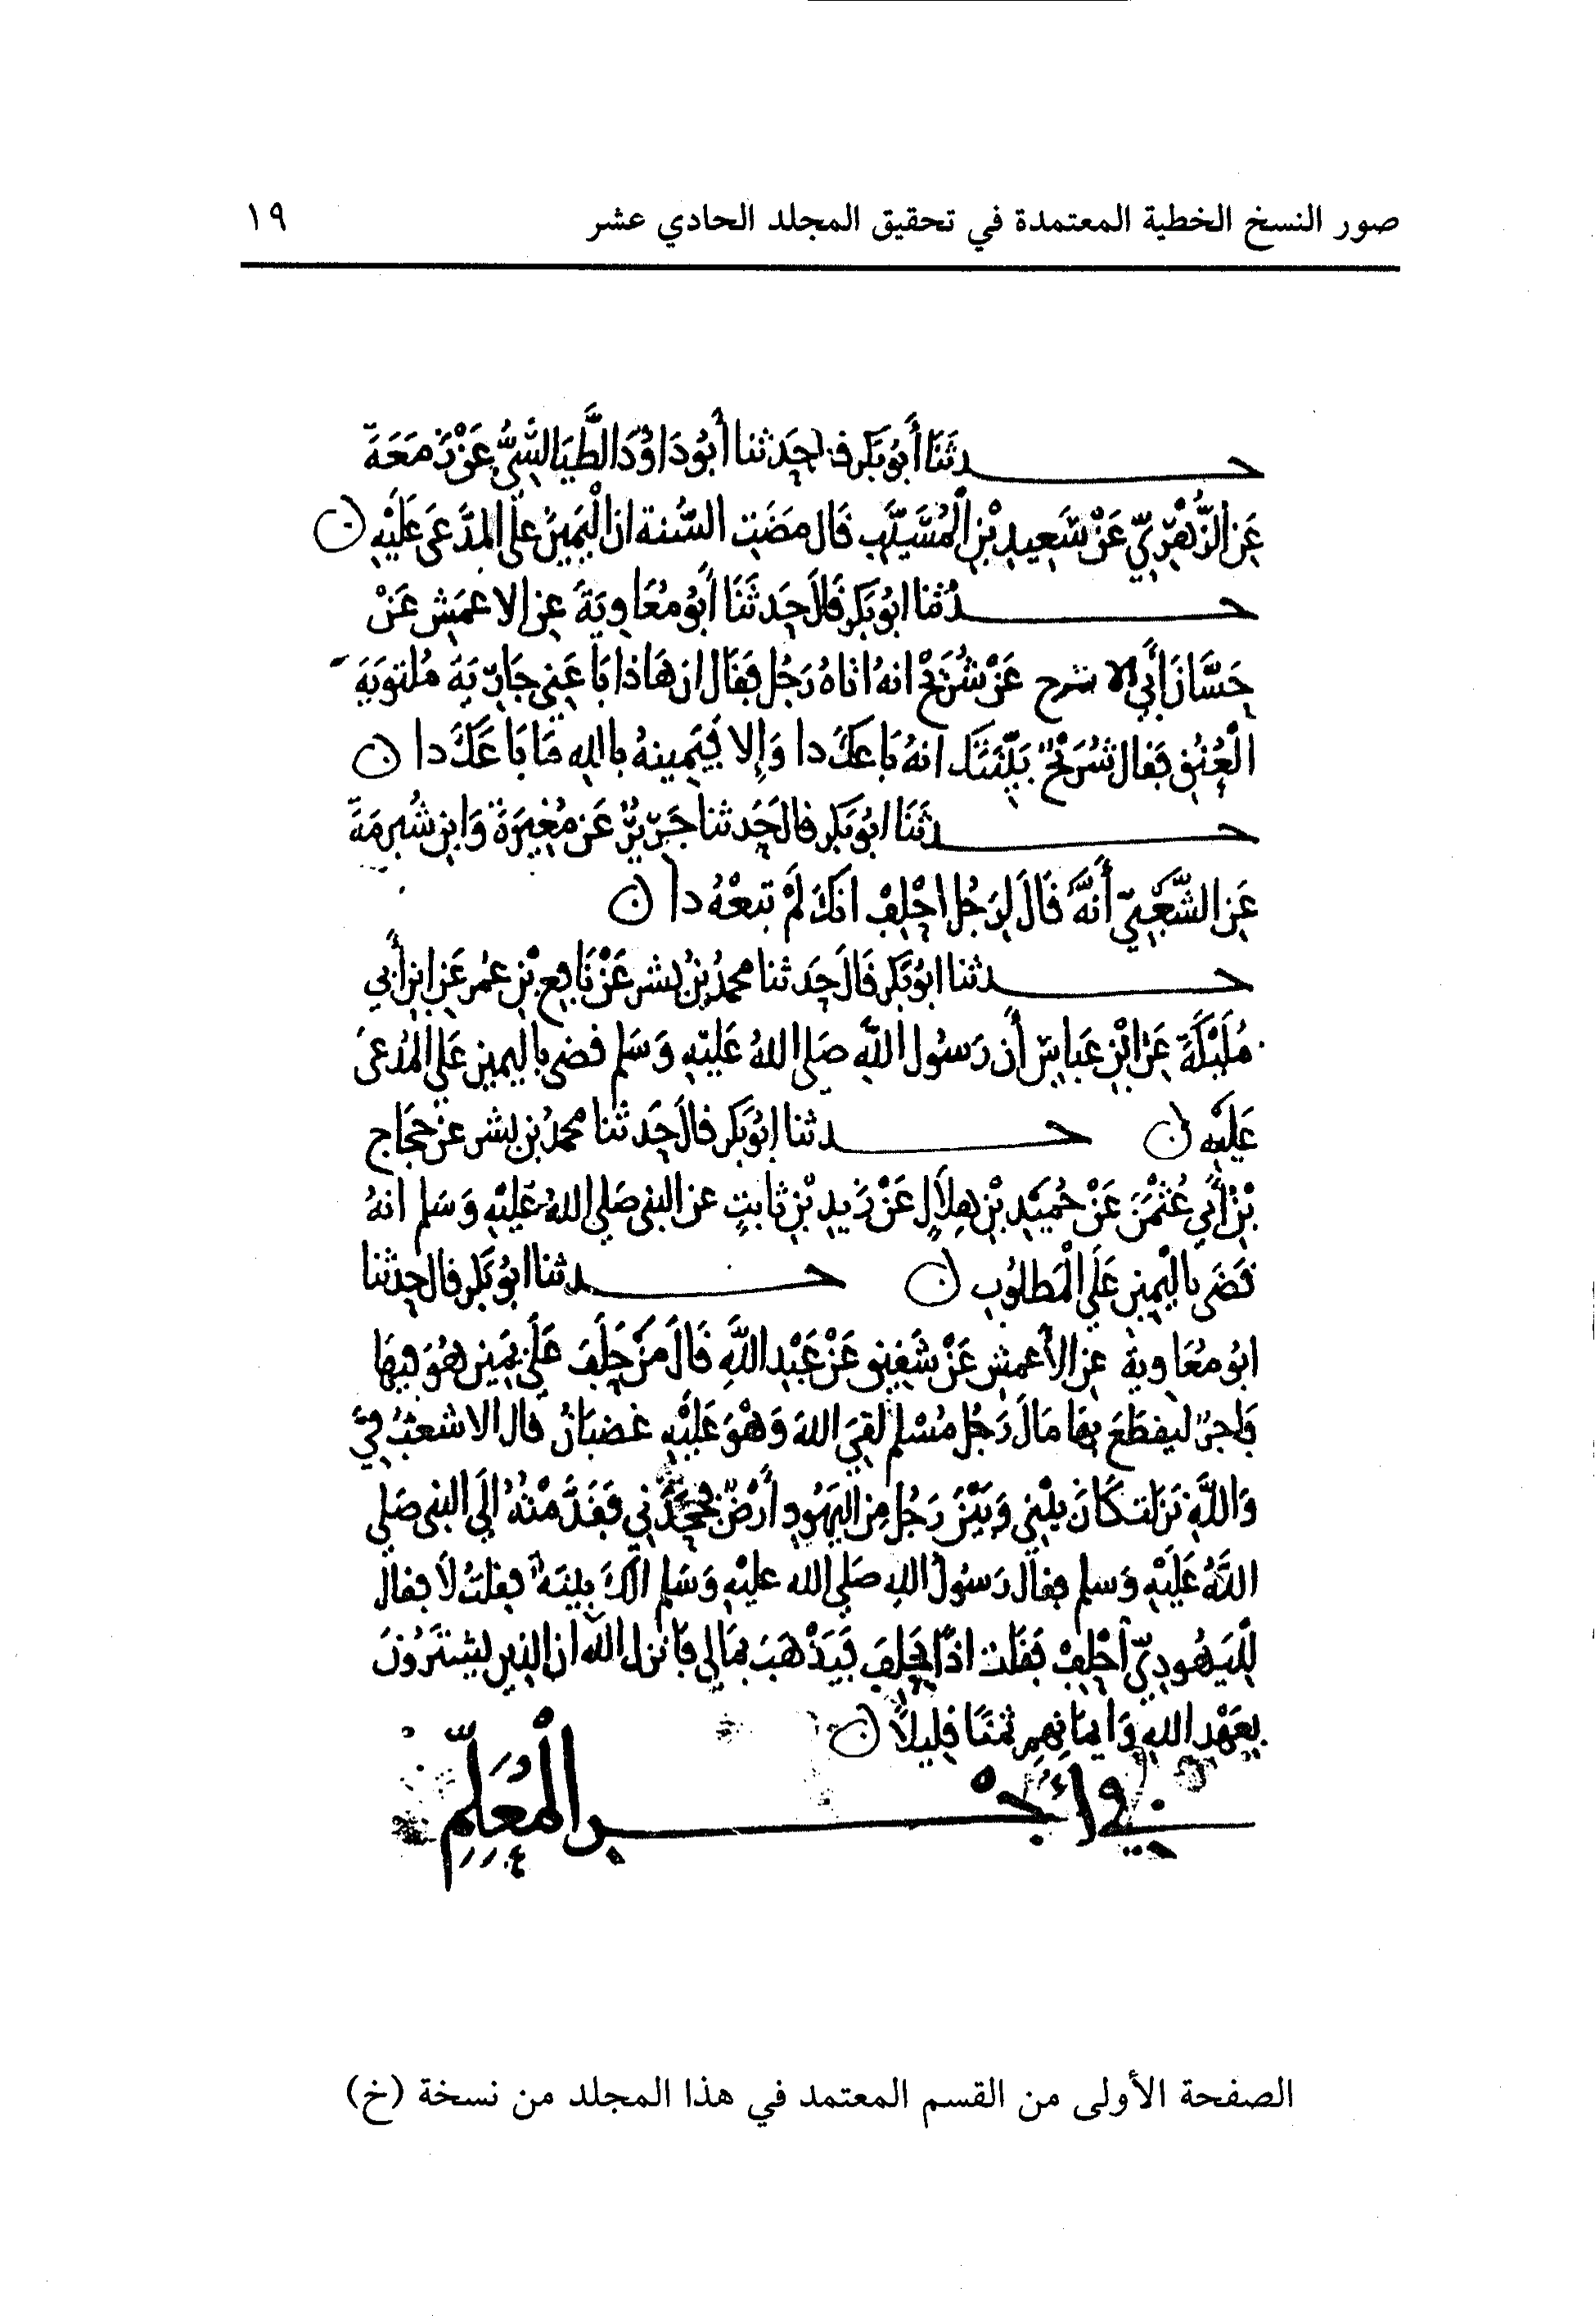 صور النسخ الخطية المعتمدة في تحقيق المجلد الحادي عشر ١٩
حدثنا أبو بكر قال حدثنا أبو داود الطيالسي عن زمعة
عن الزهري عن سعيد بن المسيب قال مضت السنة ان اليمين على المدعى عليه
حدثنا ابو بكر قال حدثنا أبو معاوية عن الاعمش عن
حسان أبي الاشرح عن شريح انه اتاه رجل فقال ان هاذا باعني جارية ملتوية
العنق فقال شريح بينتك انه باعك دا وإلا فيمينه بالله ما باعك دا
حدثنا ابو بكر قال حدثنا جرير عن مغيرة وابن شبرمة
عن الشعبي أنه قال لرجل احلف انك لم تبعه دا
حدثنا ابو بكر قال حدثنا محمد بن بشر عن نافع بن عمر عن ابن أبي
مليكة عن ابن عباس أن رسول الله صلى الله عليه وسلم قضى باليمين على المدعى
عليه حدثنا ابو بكر قال حدثنا محمد بن بشر عن حجاج
بن أبي عثمن عن حميد بن هلال عن زيد بن ثابت عن النبي صلى الله عليه وسلم انه
قضى باليمين على المطلوب حدثنا ابو بكر قال حدثنا
ابو معاوية عن الأعمش عن شقيق عن عبد الله قال من حلف على يمين هو فيها
فاجر ليقطع بها مال رجل مسلم لقي الله وهو عليه غضبان قال الاشعث في
والله نزلت كان بيني وبين رجل من اليهود أرض فجحدني فقدمته الى النبي صلى
الله عليه وسلم فقال رسول الله صلى الله عليه وسلم الك بينة فقلت لا فقال
لليهودي احلف فقلت اذا يحلف فيذهب بمالي فانزل الله ان الذين يشترون
بعهد الله وايمانهم ثمنا قليلا
في أجر المعلم
الصفحة الأولى من القسم المعتمد في هذا المجلد من نسخة (خ)